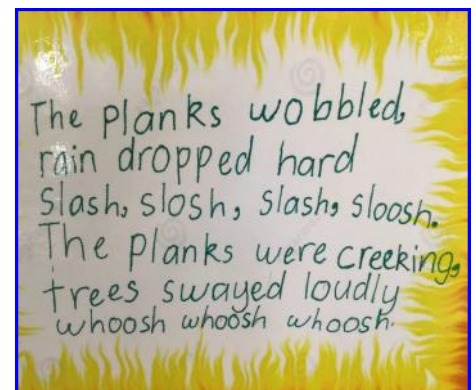 The planks wobbled,
rain dropped hard
Slash, slosh, slash, sloosh.
The planks were creeking,
trees swayed loudly
whoosh whoosh whoosh.